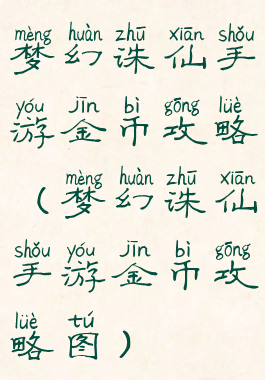 mèng huàn zhū xiān shǒu
梦幻诛仙手
yóu jīn bì gōng lüè
游金币攻略
mèng huàn zhū xiān
（梦幻诛仙
shǒu yóu jīn bì gōng
手游金币攻
lüè tú
略图）